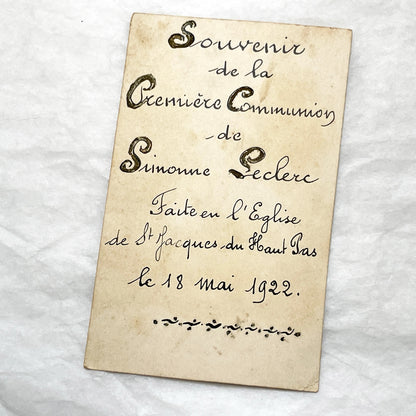 Souvenir
de la
Première Communion
de
Simonne Leclerc
Faite en l'Eglise
de St Jacques du Haut Pas
le 18 mai 1922.